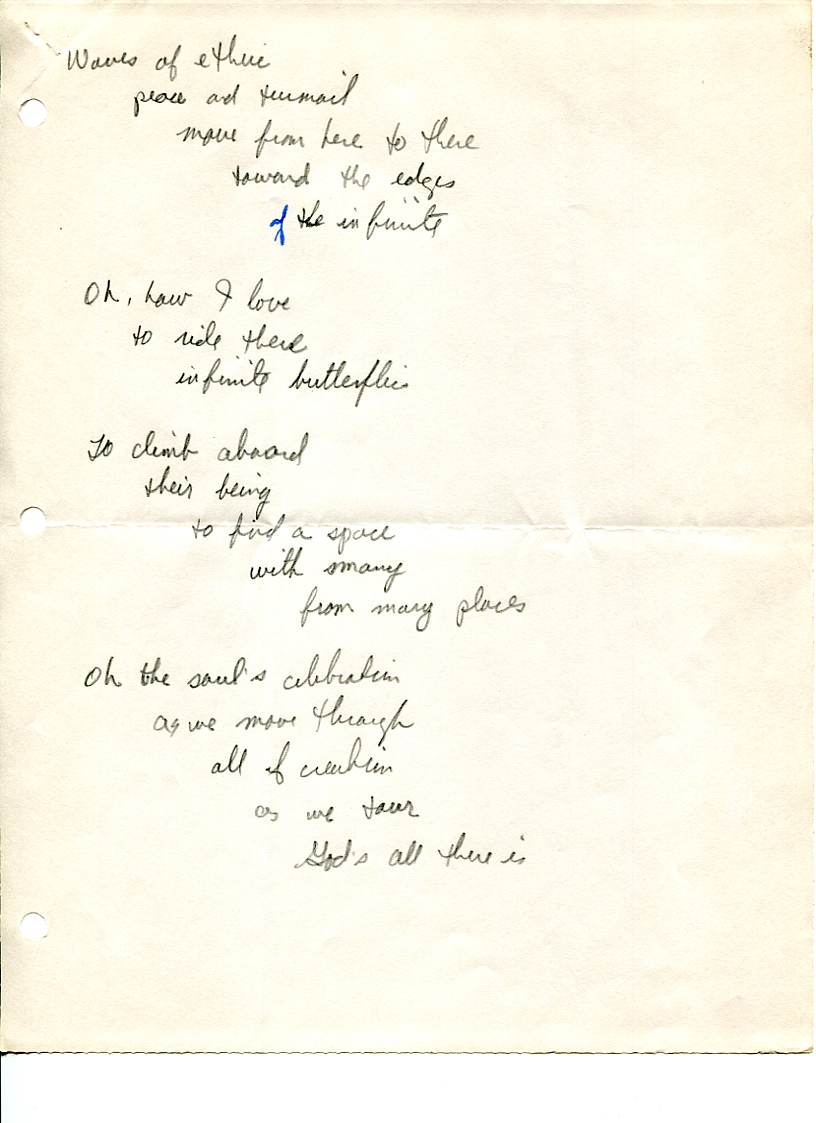 Waves of etheric
peace and turmoil
move from here to there
toward the edges
of the infinite
Oh, how I love
to ride these
infinite butterflies
To climb aboard
their being
to find a space
with many
from many places
Oh the soul's celebration
as we move through
all of creation
as we tour
God's all there is